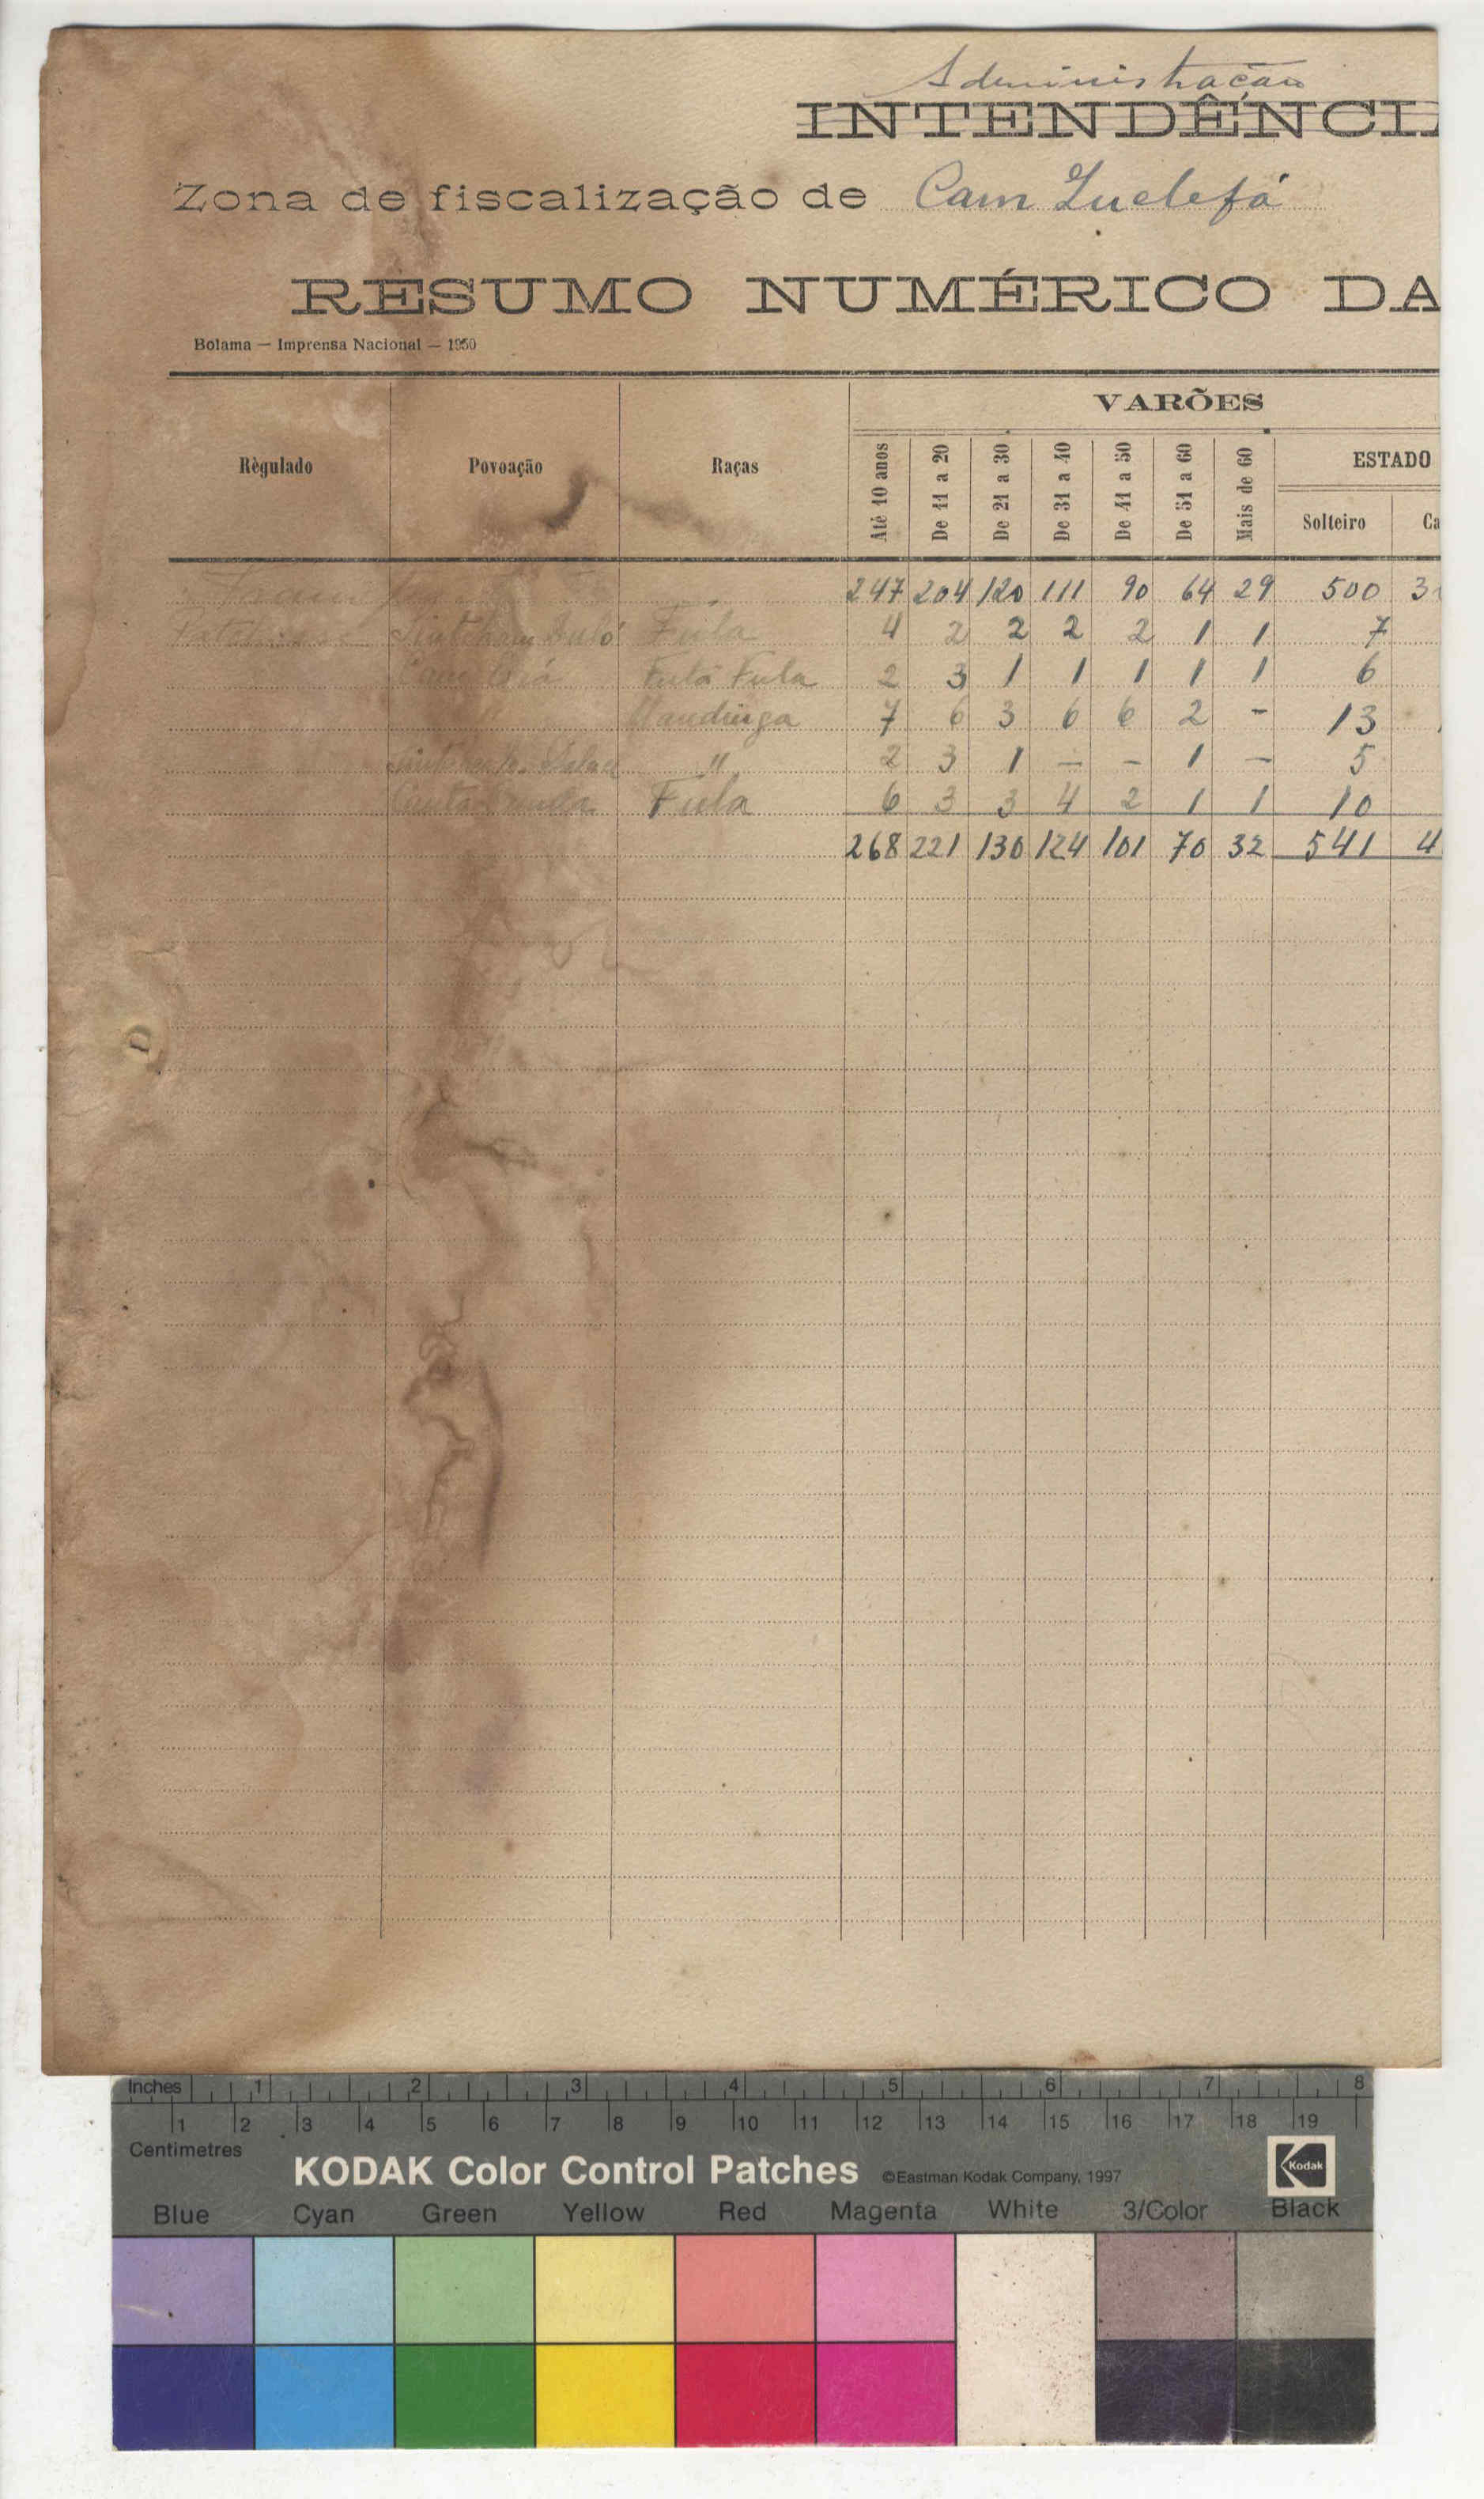 Administração
INTENDÊNCI
Zona de fiscalização de Cam Zuelefá
RESUMO NUMÉRICO DA
Bolama — Imprensa Nacional — 1950
VARÕES
Règulado Povoação Raças Até 10 anos De 11 a 20 De 21 a 30 De 31 a 40 De 41 a 50 De 51 a 60 Mais de 60 ESTADO
Solteiro Ca
247 204 120 111 90 64 29 500 3
Fula 4 2 2 2 2 1 1 7
Futa Fula 2 3 1 1 1 1 1 6
" Mandinga 7 6 3 6 6 2 - 13
" 2 3 1 - - 1 - 5
Fula 6 3 3 4 2 1 1 10
268 221 130 124 101 70 32 541 4
Inches 1 2 3 4 5 6 7 8
1 2 3 4 5 6 7 8 9 10 11 12 13 14 15 16 17 18 19
Centimetres
KODAK Color Control Patches ©Eastman Kodak Company, 1997 Kodak
Blue Cyan Green Yellow Red Magenta White 3/Color Black